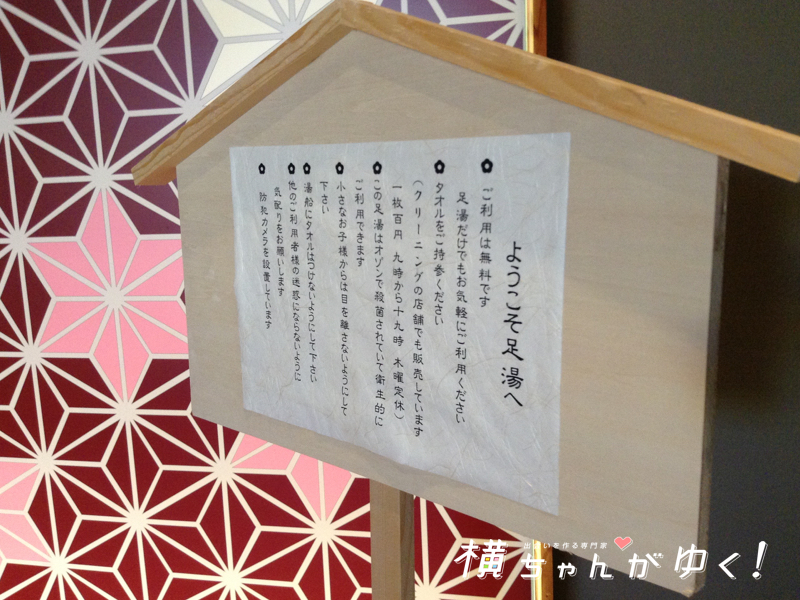 ようこそ足湯へ
ご利用は無料です
足湯だけでもお気軽にご利用ください
タオルをご持参ください
(クリーニングの店舗でも販売しています
一枚百円 九時から十九時 木曜定休)
この足湯はオゾンで殺菌されていて衛生的に
ご利用できます
小さなお子様からは目を離さないようにして
下さい
湯船にタオルはつけないようにして下さい
他のご利用者様の迷惑にならないように
気配りをお願いします
防犯カメラを設置しています
出会いを作る専門家
横ちゃんがゆく!